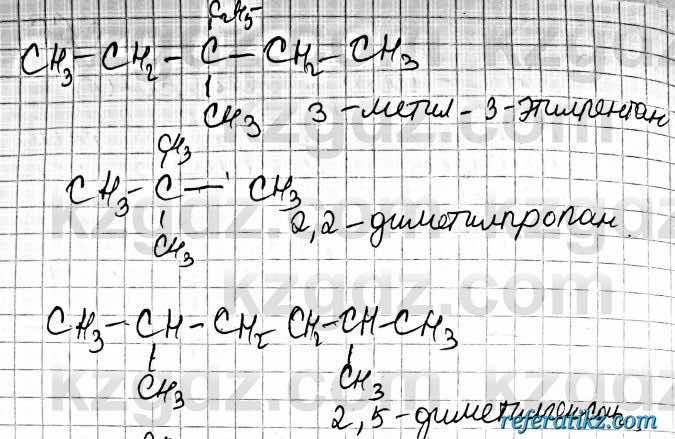 C₂H₅
CH₃ – CH₂ – C – CH₂ – CH₃
CH₃ 3 - метил - 3 - этилпентан
CH₃
CH₃ – C – CH₃
CH₃ 2,2 - диметилпропан.
CH₃ – CH – CH₂ CH₂ – CH – CH₃
CH₃ CH₃
2,5 - диметилгексан
referatikz.com
kzgdz.com